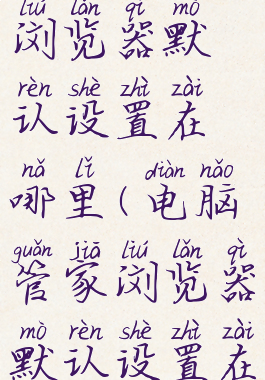 liú lǎn qì mò
浏览器默
rèn shè zhì zài
认设置在
nǎ lǐ diàn nǎo
哪里(电脑
guǎn jiā liú lǎn qì
管家浏览器
mò rèn shè zhì zài
默认设置在